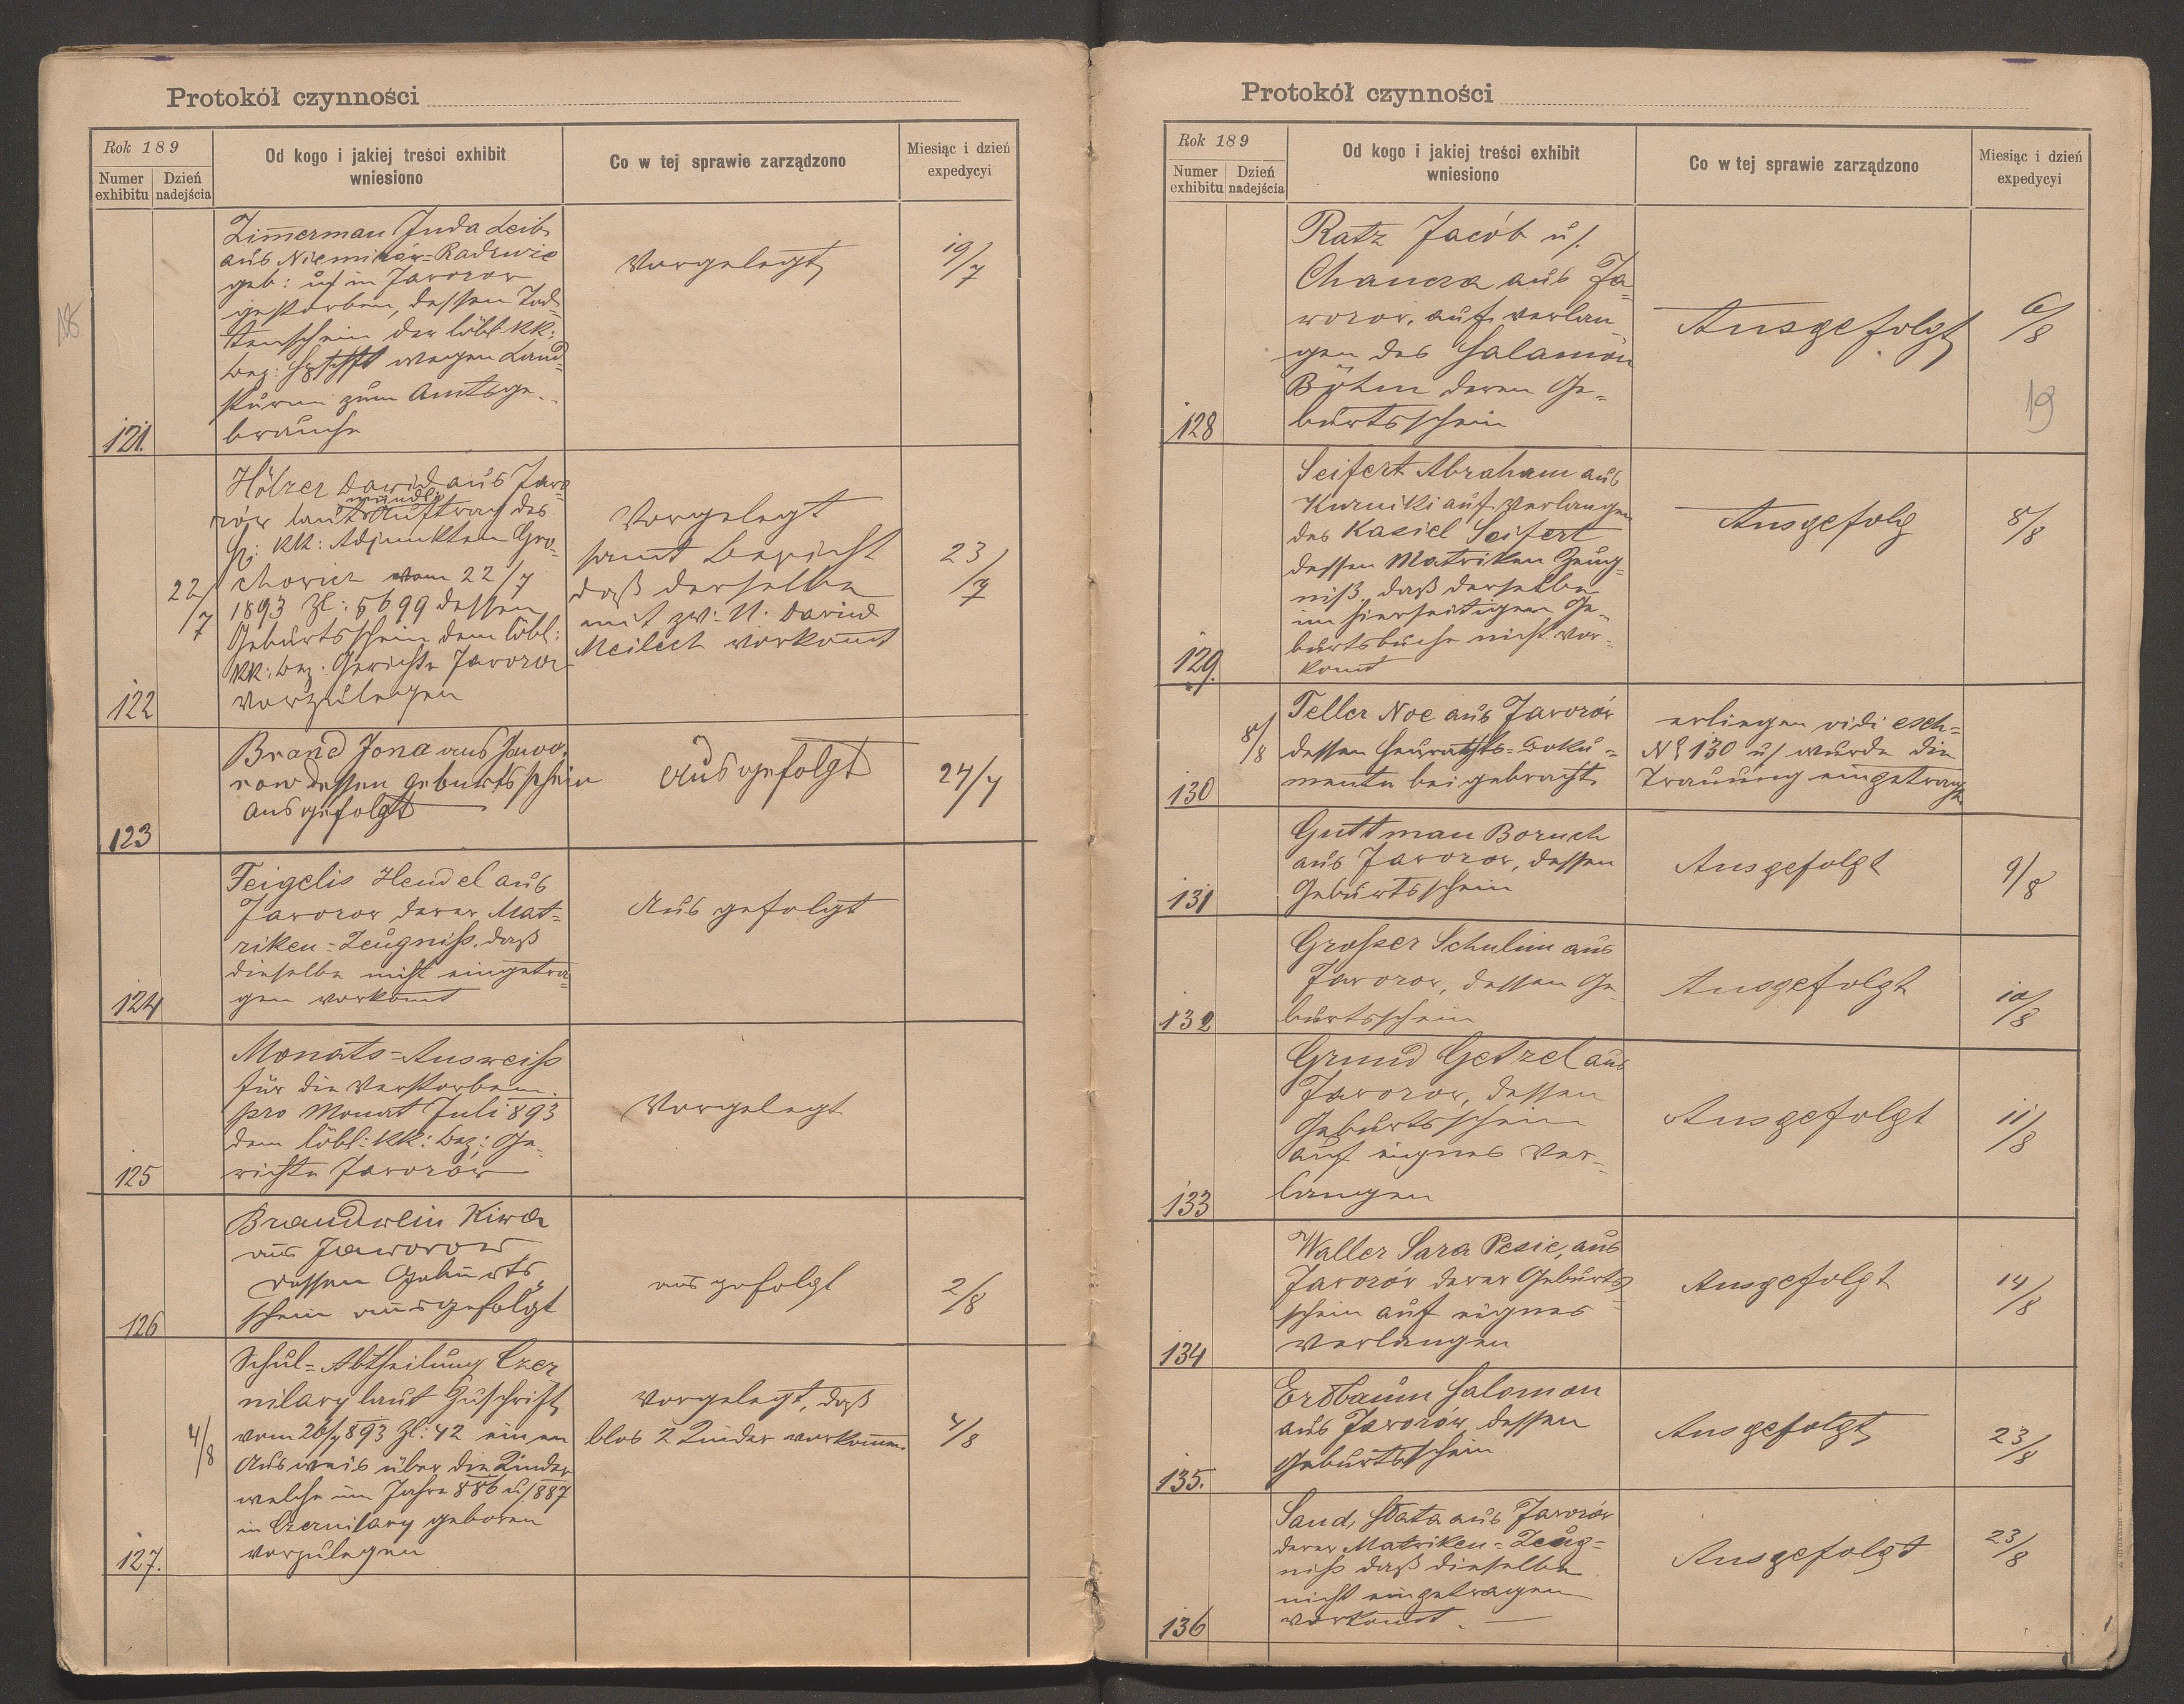 Protokół czynności
Rok 189
Numer exhibitu
Dzień nadejścia
Od kogo i jakiej treści exhibit wniesiono
Co w tej sprawie zarządzono
Miesiąc i dzień expedycyi
18
121.
Zimerman Juda Leib
aus Niemirów-Radruvie
geb: u/ in Javorow
gestorben, dessen Tod-
tenschein der löbl kk:
bez: Hptschft wegen Land-
sturm zum Amtsge-
brauche
Vorgelegt
19/7
122
22/7
Hölzer Dawid aus Javo-
rów laut mündl: Auftrag des
H: KK: Adjunkten Gro-
chowicz vom 22/7
1893 Zl: 5699 dessen
Geburtsschein dem löbl:
KK: Bez: Gerichte Javorow
vorzulegen
Vorgelegt
samt Bericht
daß derselbe
mit zw: N. David
Meilech vorkomt
23/7
123
Brand Jona aus Javo-
row dessen Geburtsschein
ausgefolgt
Ausgefolgt
24/7
124
Feigelis Hendel aus
Javorow derer Mat-
riken-Zeugniß. daß
dieselbe nicht eingetra-
gen vorkomt
Ausgefolgt
125
Monats-Ausweiß
für die Verstorbenen
pro Monat Juli 893
dem löbl: KK: Bez: Ge-
richte Javorów
Vorgelegt
126
Brandwein Kiwa
aus Jaworow
dessen Geburts
schein ausgefolgt
ausgefolgt
2/8
127.
4/8
Schul-Abtheilung Czer
nilary laut Zuschrift
vom 26/7 893 Zl: 42 einen
Ausweis über die Kinder
welche im Jahre 886 u/ 887
in Czernilary geboren
vorzulegen
Vorgelegt, daß
blos 2 Kinder vorkommen.
4/8
Protokół czynności
Rok 189
Numer exhibitu
Dzień nadejścia
Od kogo i jakiej treści exhibit wniesiono
Co w tej sprawie zarządzono
Miesiąc i dzień expedycyi
19
128
Ratz Jacób u/.
Chancza aus Ja-
worow, auf verlan-
gen des Salamon
Böhm deren Ge-
burtsschein
Ausgefolgt
6/8
129.
Seifert Abraham aus
Kurniki auf Verlangen
des Kasiel Seifert
dessen Matriken Zeug-
niß, daß derselbe
im hierseitigen Ge-
burtsbuche nicht vor-
komt
Ausgefolg
8/8
130
8/8
Teller Noe aus Javorów
dessen Heuraths-Doku-
mente beigebracht.
erliegen vidi exh-
No 130 u/ wurde die
Trauung eingetragen
131
Guttman Boruch
aus Javorow, dessen
Geburtsschein
Ausgefolgt
9/8
132
Großer Schulim aus
Javorow, dessen Ge-
burtsschein
Ausgefolgt
10/8
133
Grund Getzel aus
Javorow, dessen
Geburtsschein
auf eignes Ver-
langen
Ausgefolgt
11/8
134
Waller Sara Pesie, aus
Javorów derer Geburts-
schein auf eignes
verlangen
Ausgefolgt
14/8
135.
Erdbaum Salomon
aus Javorów, dessen
Geburtsschein
Ausgefolgt
23/8
136
Sand, Slata aus Javorów
derer Matriken-Zeug-
niß daß dieselbe
nicht eingetragen
vorkomt.
Ausgefolgt
23/8